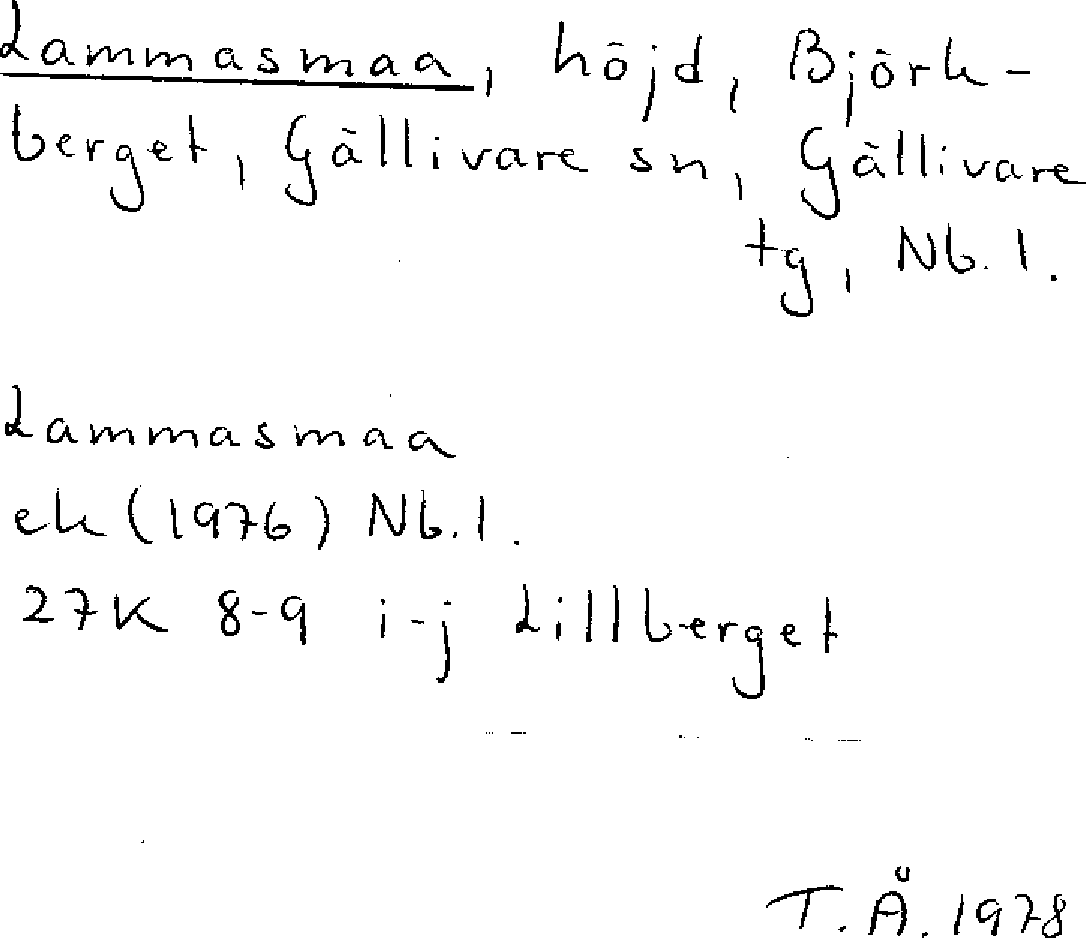 Lammasmaa, höjd, Björk-
berget, Gällivare sn, Gällivare
tg, Nb. l.
Lammasmaa
ek (1976) Nb. l.
27K 8-9 i-j Lillberget
T. Å. 1978